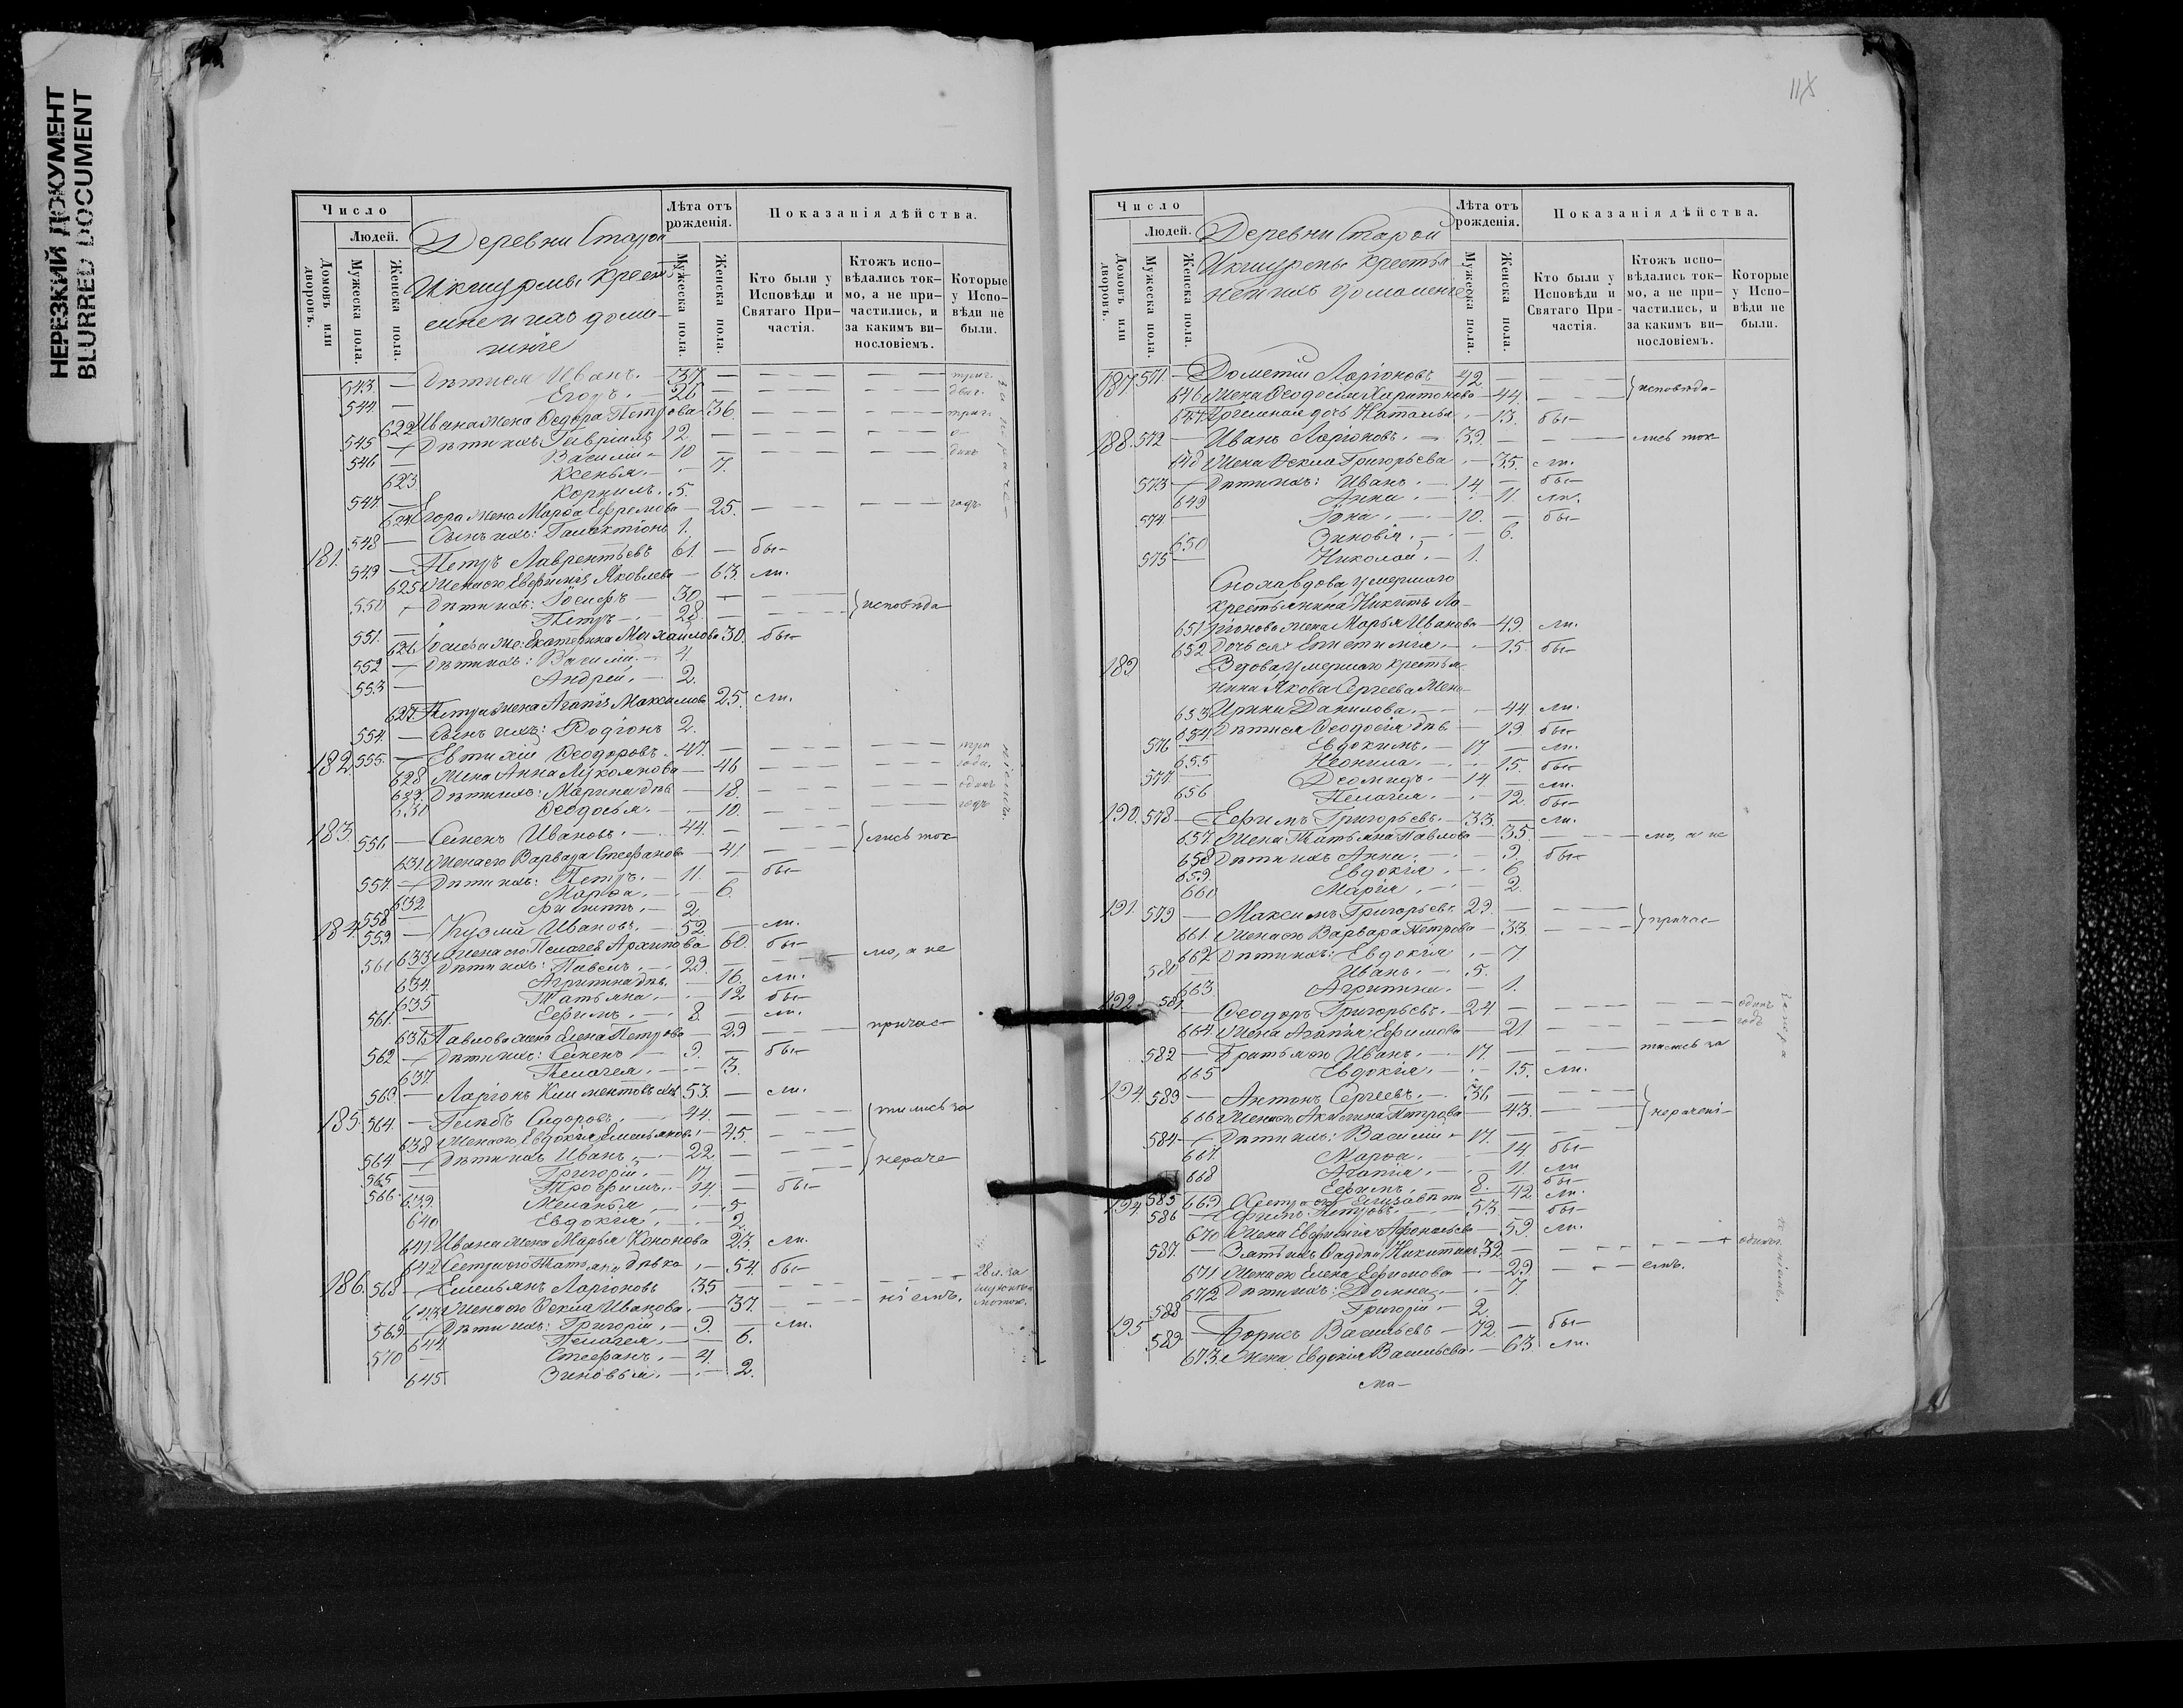 НЕРЕЗКИЙ ДОКУМЕНТ
BLURRED DOCUMENT
Число
Людей.
Домовъ или дворовъ.
Мужеска пола.
Женска пола.
Деревни Старой
Икшурмы крестъ
яне и ихъ дома-
шніе
Лѣта отъ рожденія.
Мужеска пола.
Женска пола.
Показанія дѣйства.
Кто были у Исповѣди и Святаго Причастія.
Ктожъ испо-
вѣдались ток-
мо, а не при-
частились, и
за какимъ ви-
нословіемъ.
Которые
у Испо-
вѣди не
были.
543. — Дѣти ея Иванъ. — 37. —
544. — Егоръ. — 26 —
622 Ивана жена Ѳедора Петрова 36.
545 — Дѣти ихъ Гавріилъ 12. —
546 — Василій — 10 —
623 Ксенья. — 7.
547. — Корнилъ. 5.
624 Егора жена Марѳа Ефремова — 25. — годъ
548 — Сынъ ихъ: Галактіонъ 1.
181. 549 — Петръ Лаврентьевъ 61. — бы-
625 Жена его Евфимія Яковлева — 63. ли.
550 — Дѣти ихъ: Іосифъ — 30. — исповѣда-
551. — Петръ — 28. —
626 Іосифа же: Екатерина Михайлова 30. бы-
552 — Дѣти ихъ: Василій. — 4.
553 — Андрей. — 2.
627 Петра жена Агафія Максимова 25. ли.
554. — Сынъ ихъ: Родіонъ 2.
182. 555. — Евтихій Ѳеодоровъ. 47. — три
628 Жена Анна Лукоянова — 46 — года.
629. Дѣти ихъ: Марина дѣв — 18. — одинъ
630 Ѳеодосья. — 10. — годъ
183. 556 — Семенъ Ивановъ. — 44. — лись ток-
631. Жена его Варвара Стефанова — 41. —
557. — Дѣти ихъ: Петръ. — 11. — бы-
632 Марѳа. — 6.
558 — Филиппъ. — 2.
184. 559 — Кузма Ивановъ. — 52. — ли.
633 Жена его Пелагея Архипова 60. бы-
560 — Дѣти ихъ: Павелъ. — 29. — мо, а не
634. Агрипина дѣв. — 16. ли.
635 Татьяна. — 12 бы-
561. — Ефимъ. — 8. — ли.
636 Павлова жена Елена Петрова — 29 — причас-
562 — Дѣти ихъ: Семенъ — 9. — бы-
637. Пелагея. — 3.
563 — Ларіонъ Климентовъ 53. — ли.
185. 564. — Глѣбъ Сидоровъ. — 44. — тились за
638 Жена его Евдокія Емельянова — 45. —
564. — Дѣти ихъ Иванъ. — 22 —
565 — Григорій. — 17. — нераче-
566. — Трофимъ. — 14. — бы-
639. Меланья — 5
640 Евдокія. — 2.
641. Ивана жена Марья Кононова 23. ли.
642 Сестра его Татьяна дѣвка — 54. бы-
186. 568 — Емельянъ Ларіоновъ 35 —
643 Жена его Ѳекла Иванова. — 37. — ніемъ.
569. — Дѣти ихъ: Григорій. — 9. — ли.
644 Пелагея. — 6.
570 — Стефанъ. — 4.
645 Зиновья. — 2.
Число
Людей.
Домовъ или дворовъ.
Мужеска пола.
Женска пола.
Деревни Старой
Икшурмы крестья
не и ихъ домашніе
Лѣта отъ рожденія.
Мужеска пола.
Женска пола.
Показанія дѣйства.
Кто были у Исповѣди и Святаго Причастія.
Ктожъ испо-
вѣдались ток-
мо, а не при-
частились, и
за какимъ ви-
нословіемъ.
Которые
у Испо-
вѣди не
были.
187. 571. — Дометій Ларіоновъ 42 — исповѣда-
646 Жена Ѳеодосія Харитонова — 44. —
647. Пріемная дочь Наталья. — 13. бы-
188. 572 — Иванъ Ларіоновъ. — 39. — лись ток-
648 Жена Ѳекла Григорьева — 35. ли.
573 — Дѣти ихъ: Иванъ. — 14. — бы-
649 Анна. — 11. ли.
574. — Іона. — 10. — бы-
650 Зиновія. — 6.
575 — Николай. — 1.
Сноха вдова умершаго
крестьянина Никиты Ла-
651 ріонова жена Марья Иванова — 49. ли.
652 Дочь ея Епистимія — 15. бы-
189 Вдова умершаго крестья-
нина Якова Сергеева жена
653 Ирина Данилова. — 44 ли.
654 Дѣти ея Ѳеодосія дѣв — 19 бы-
576 — Евдокимъ. — 17. — ли.
655 Неонила. — 15. бы-
577. — Деомидъ. — 14 ли.
656 Пелагея. — 12. бы-
190. 578 — Ефимъ Григорьевъ. — 33. — ли.
657. Жена Татьяна Павлова — 35. — мо, а не
658 Дѣти ихъ Анна. — 9. бы-
659. Евдокія. — 6
660 Марія. — 2.
191. 579 — Максимъ Григорьевъ 29. — причас-
661. Жена его Варвара Петрова — 33 —
662 Дѣти ихъ: Евдокія — 7
580 — Иванъ. — 5.
663. Агрипина. — 1.
192 581. — Ѳеодоръ Григорьевъ. — 24 — одинъ
664. Жена Агафія Ефимова — 21 — годъ
582 — Братья его Иванъ. — 17. — тились за
665 Евдокія. — 15. ли.
194. 583 — Антонъ Сергеевъ. — 36 —
666 Жена его Акилина Петрова — 43. — нерачені-
584 — Дѣти ихъ: Василій — 17. —
667. Марѳа. — 14 бы-
668 Агафія. — 11 ли
585 — Ефимъ. — 8. — бы-
669 Сестра его Елизавета 42 ли.
194. 586 — Петровъ. — 53 — бы-
670 Жена Евфимія Афонасьева — 59. ли.
587. — Зять ихъ Фадей Никитинъ 32. — одинъ
671 Жена его Елена Ефимова — 29. — емъ.
672 Дѣти ихъ: Домна. — 7.
588 — Григорій — 2.
195 589 — Борисъ Васильевъ — 72. — бы-
673. Жена Евдокія Васильева. — 63. ли.